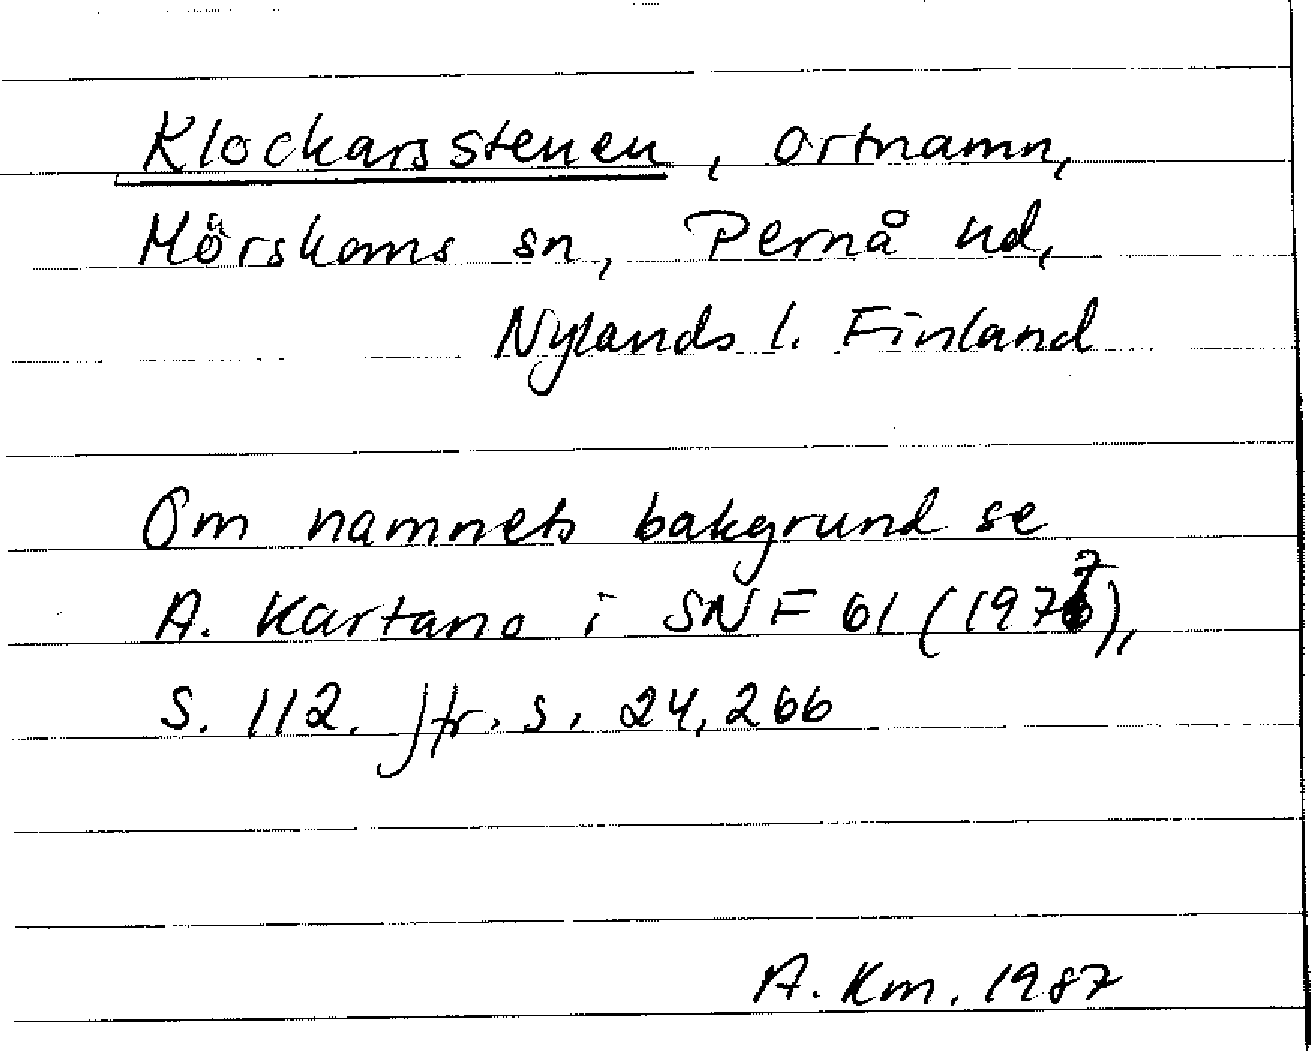 Klockarsstenen, ortnamn,
Mörskoms sn, Pernå hd,
Nylands l. Finland
Om namnets bakgrund se
A. Kartano i SNF 61 (1977),
S. 112. Jfr. s. 24, 266
A. Km. 1987